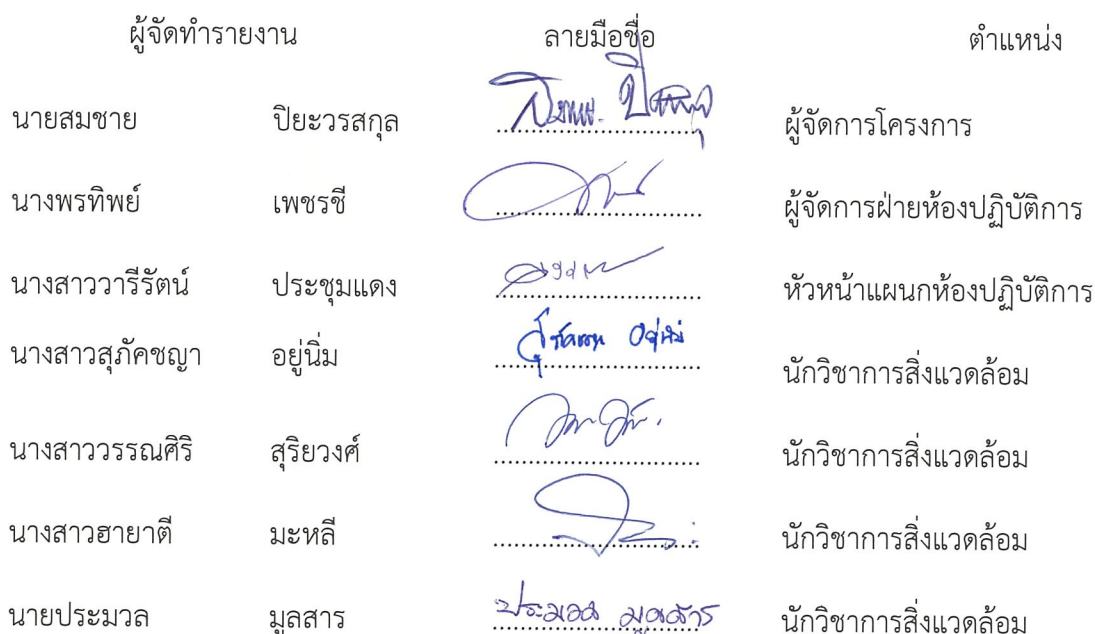 ผู้จัดทำรายงาน ลายมือชื่อ ตำแหน่ง
นายสมชาย ปิยะวรสกุล ผู้จัดการโครงการ
นางพรทิพย์ เพชรชี ผู้จัดการฝ่ายห้องปฏิบัติการ
นางสาววารีรัตน์ ประชุมแดง หัวหน้าแผนกห้องปฏิบัติการ
นางสาวสุภัคชญา อยู่นิ่ม นักวิชาการสิ่งแวดล้อม
นางสาววรรณศิริ สุริยวงศ์ นักวิชาการสิ่งแวดล้อม
นางสาวฮายาตี มะหลี นักวิชาการสิ่งแวดล้อม
นายประมวล มูลสาร ประมวล มูลสาร นักวิชาการสิ่งแวดล้อม